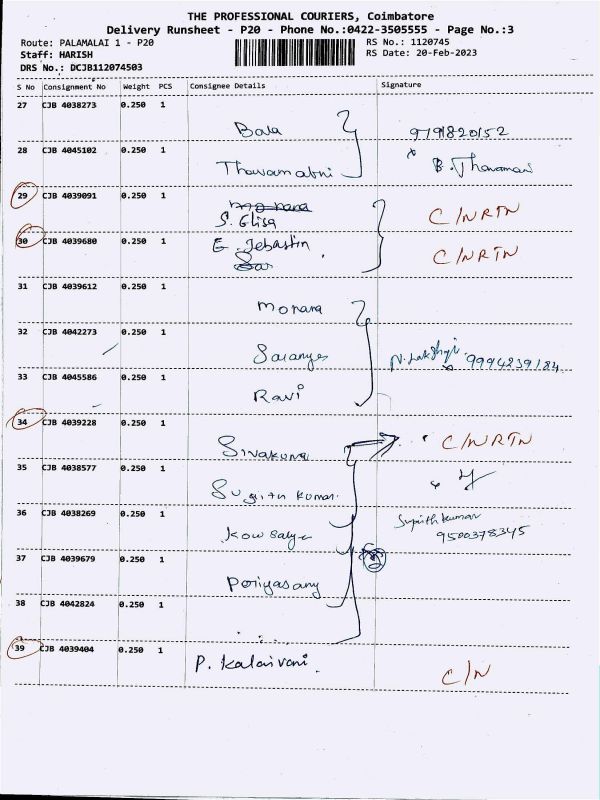 THE PROFESSIONAL COURIERS, Coimbatore
Delivery Runsheet - P20 - Phone No.:0422-3505555 - Page No.:3
Route: PALAMALAI 1 - P20 RS No.: 1120745
Staff: HARISH RS Date: 20-Feb-2023
DRS No.: DCJB112074503
S No Consignment No Weight PCS Consignee Details Signature
27 CJB 4038273 0.250 1
Bala 9791820152
28 CJB 4045102 0.250 1
B. Thavamani
29 CJB 4039091 0.250 1
S. Elisa C/NRTN
30 CJB 4039680 0.250 1
E. Jebastin C/NRTN
31 CJB 4039612 0.250 1
Monara
32 CJB 4042273 0.250 1
Saranya 9994239184
33 CJB 4045586 0.250 1
Ravi
34 CJB 4039228 0.250 1
Sivakuma C/NRTN
35 CJB 4038577 0.250 1
Kumar
36 CJB 4038269 0.250 1
Kowsalya 9500378345
37 CJB 4039679 0.250 1
38 CJB 4042824 0.250 1
39 CJB 4039404 0.250 1
P. Kalaivani C/N